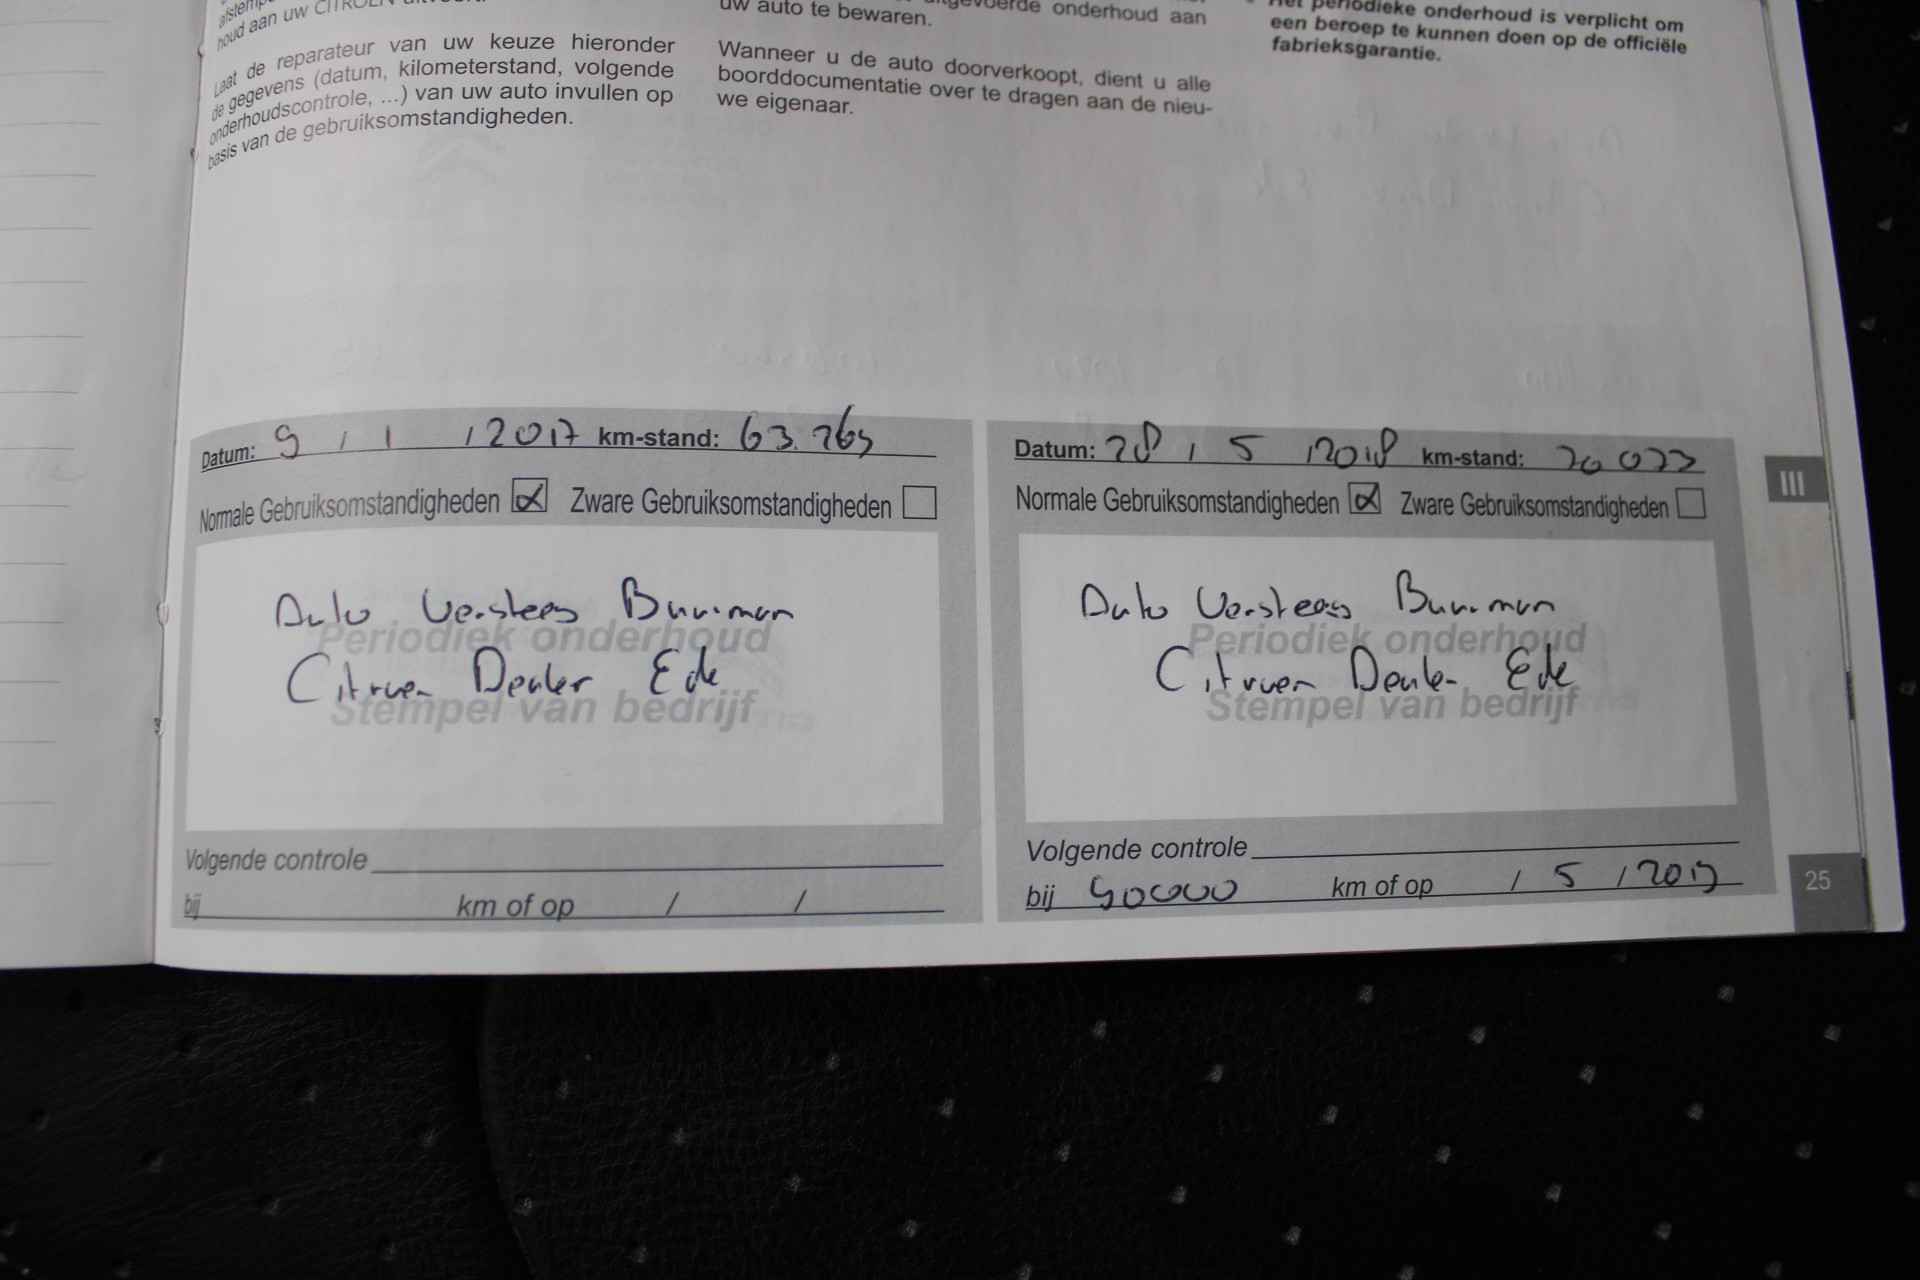 houd aan uw CITROËN
Laat de reparateur van uw keuze hieronder
de gegevens (datum, kilometerstand, volgende
onderhoudscontrole, ...) van uw auto invullen op
basis van de gebruiksomstandigheden.
onderhoud aan
uw auto te bewaren.
Wanneer u de auto doorverkoopt, dient u alle
boorddocumentatie over te dragen aan de nieu-
we eigenaar.
Het periodieke onderhoud is verplicht om
een beroep te kunnen doen op de officiële
fabrieksgarantie.
Datum: 9 / 1 / 2017 km-stand: 63.765
Normale Gebruiksomstandigheden Zware Gebruiksomstandigheden
Auto Versteeg Buurman
Periodiek onderhoud
Citroen Dealer Ede
Stempel van bedrijf
Volgende controle
bij km of op / /
Datum: 28 / 5 / 2018 km-stand:
Normale Gebruiksomstandigheden Zware Gebruiksomstandigheden
Auto Versteeg Buurman
Periodiek onderhoud
Citroen Dealer Ede
Stempel van bedrijf
Volgende controle
bij 90000 km of op / 5 / 2019
III
25